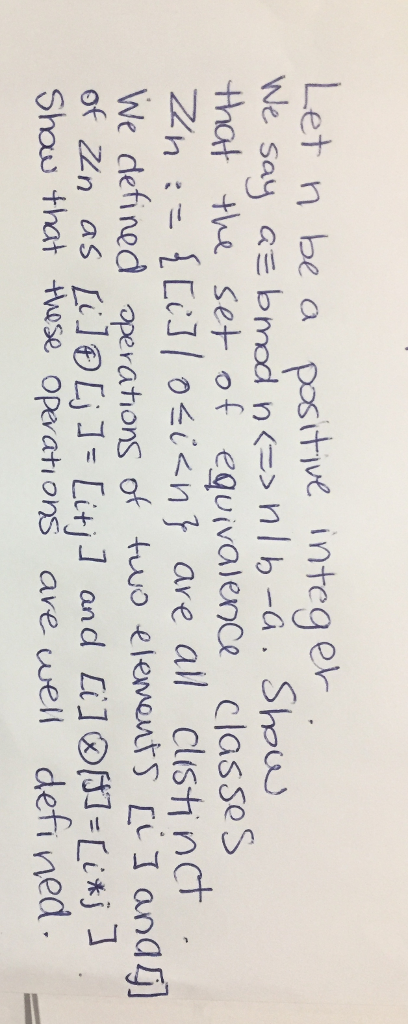 Let n be a positive integer.
We say a≡bmod n<=>n|b-a. Show
that the set of equivalence classes
Zn := {[i]| 0≤i<n} are all distinct.
We defined operations of two elements [i] and [j]
of Zn as [i]⊕[j]=[i+j] and [i]⊗[j]=[i*j]
Show that these operations are well defined.